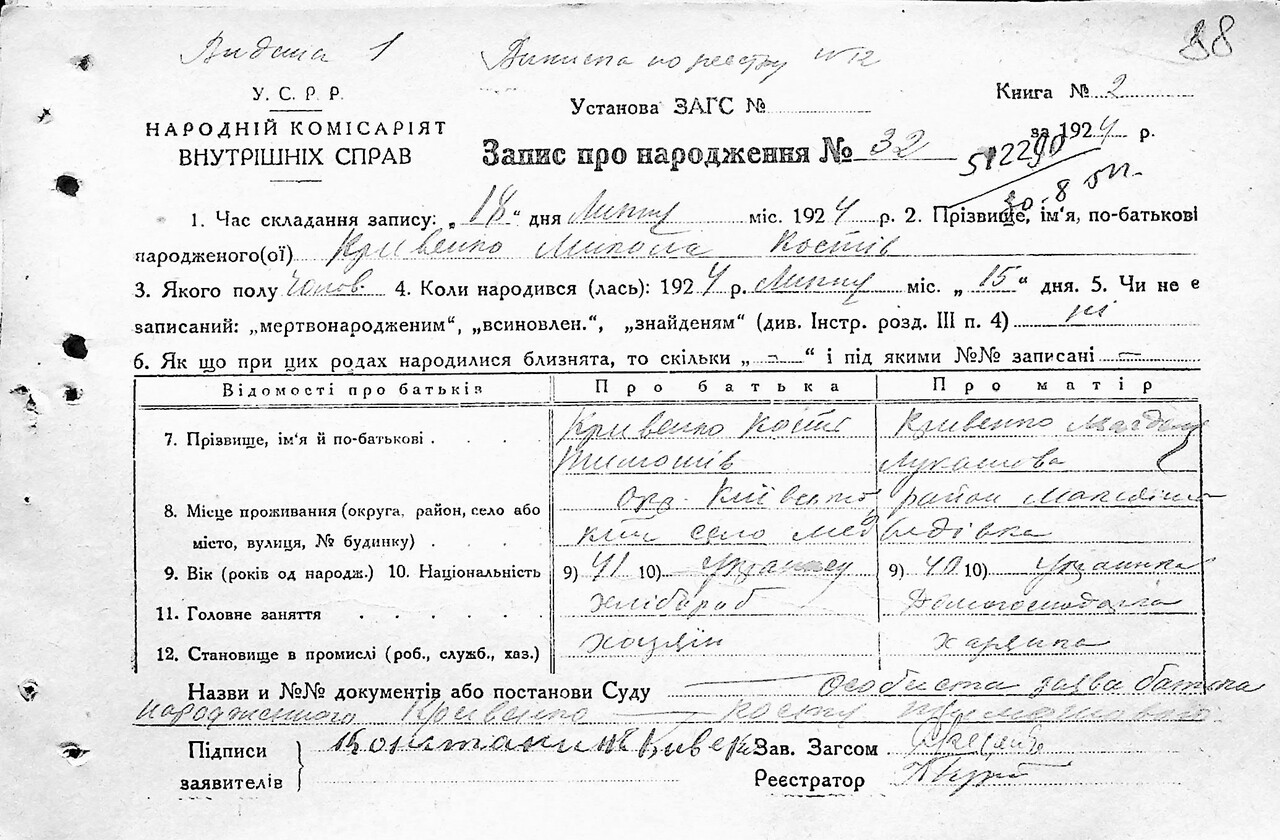 88
Видана 1 Виписка по реєстру № 12
У. С. Р. Р.
НАРОДНІЙ КОМІСАРІЯТ
ВНУТРІШНІХ СПРАВ
Установа ЗАГС №
Книга № 2
за 1924 р.
Запис про народження № 32
512290
30.8
1. Час складання запису: „18“ дня Лютня міс. 1924 р. 2. Прізвище, ім'я, по-батькові
народженого(ої) Кривенко Микола Костів
3. Якого полу Чолов 4. Коли народився (лась): 1924 р. Лютня міс. „15“ дня. 5. Чи не є
записаний: „мертвонародженим“, „всиновлен.“, „знайденям“ (див. Інстр. розд. III п. 4) ні
6. Як що при цих родах народилися близнята, то скільки „ – “ і під якими №№ записані –
Відомості про батьків Про батька Про матір
7. Прізвище, ім'я й по-батькові Кривенко Кость Тимошів Кривенко Лукашова
8. Місце проживання (округа, район, село або
місто, вулиця, № будинку) Окр. район село Медведівка
9. Вік (років од народж.) 10. Національність 9) 41 10) Українец 9) 40 10) Українка
11. Головне заняття хлібороб Домогосподарка
12. Становище в промислі (роб., служб., хаз.) хозяїн
Назви и №№ документів або постанови Суду Особиста заява батька
народженного Кривенко Костя
Підписи
заявителів
Зав. Загсом
Реєстратор